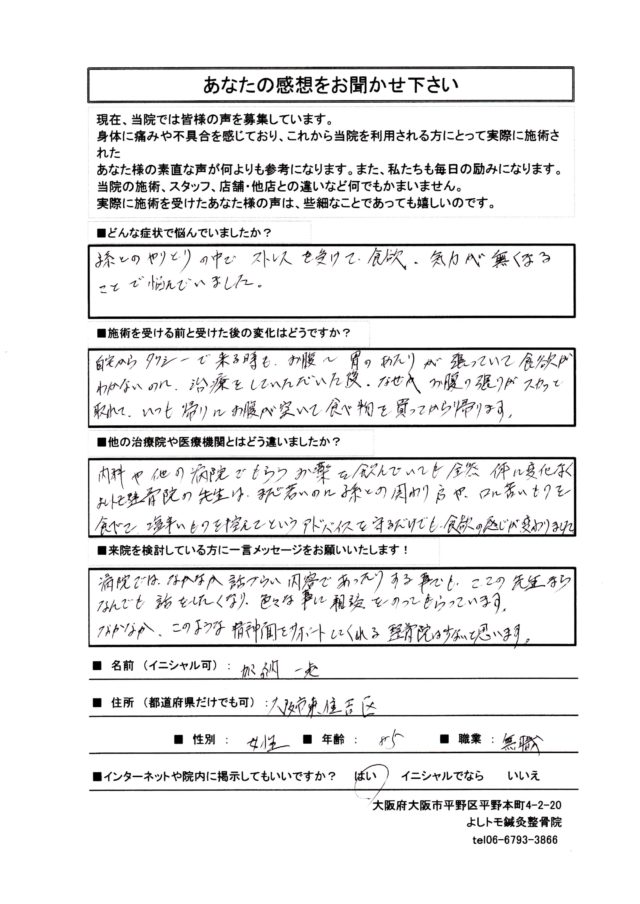 あなたの感想をお聞かせ下さい
現在、当院では皆様の声を募集しています。
身体に痛みや不具合を感じており、これから当院を利用される方にとって実際に施術さ
れた
あなた様の素直な声が何よりも参考になります。また、私たちも毎日の励みになります。
当院の施術、スタッフ、店舗・他店との違いなど何でもかまいません。
実際に施術を受けたあなた様の声は、些細なことであっても嬉しいのです。
■どんな症状で悩んでいましたか？
孫とのやりとりの中で ストレスを受けて 食欲、気力が無くなる
ことで悩んでいました。
■施術を受ける前と受けた後の変化はどうですか？
自宅からタクシーで来る時も、お腹や胃のあたりが張っていて食欲が
わかないのに、治療をしていただいた後、なぜかお腹の張りがスカッと
取れて、いつも帰りにお腹が空いて食べ物を買ってから帰ります。
■他の治療院や医療機関とはどう違いましたか？
内科や他の病院でもらうお薬を飲んでいても全然体に変化なく
よしトモ整骨院の先生は、まだ若いのに孫との関わり方や、口に苦いものを
食べて 塩辛いものを控えてというアドバイスを守るだけでも、食欲の感じが変わりました
■来院を検討している方に一言メッセージをお願いいたします！
病院では、なかなか話づらい内容であったりする事でも、ここの先生なら
なんでも話をしたくなり、色々な事に相談をのってもらっています。
なかなか、このような精神面をサポートしてくれる整骨院は少ないと思います。
■ 名前（イニシャル可）：加納
■ 住所（都道府県だけでも可）：大阪市東住吉区
■ 性別： 女性 ■ 年齢： ■ 職業：無職
■インターネットや院内に掲示してもいいですか？ はい イニシャルでなら いいえ
大阪府大阪市平野区平野本町4-2-20
よしトモ鍼灸整骨院
tel06-6793-3866